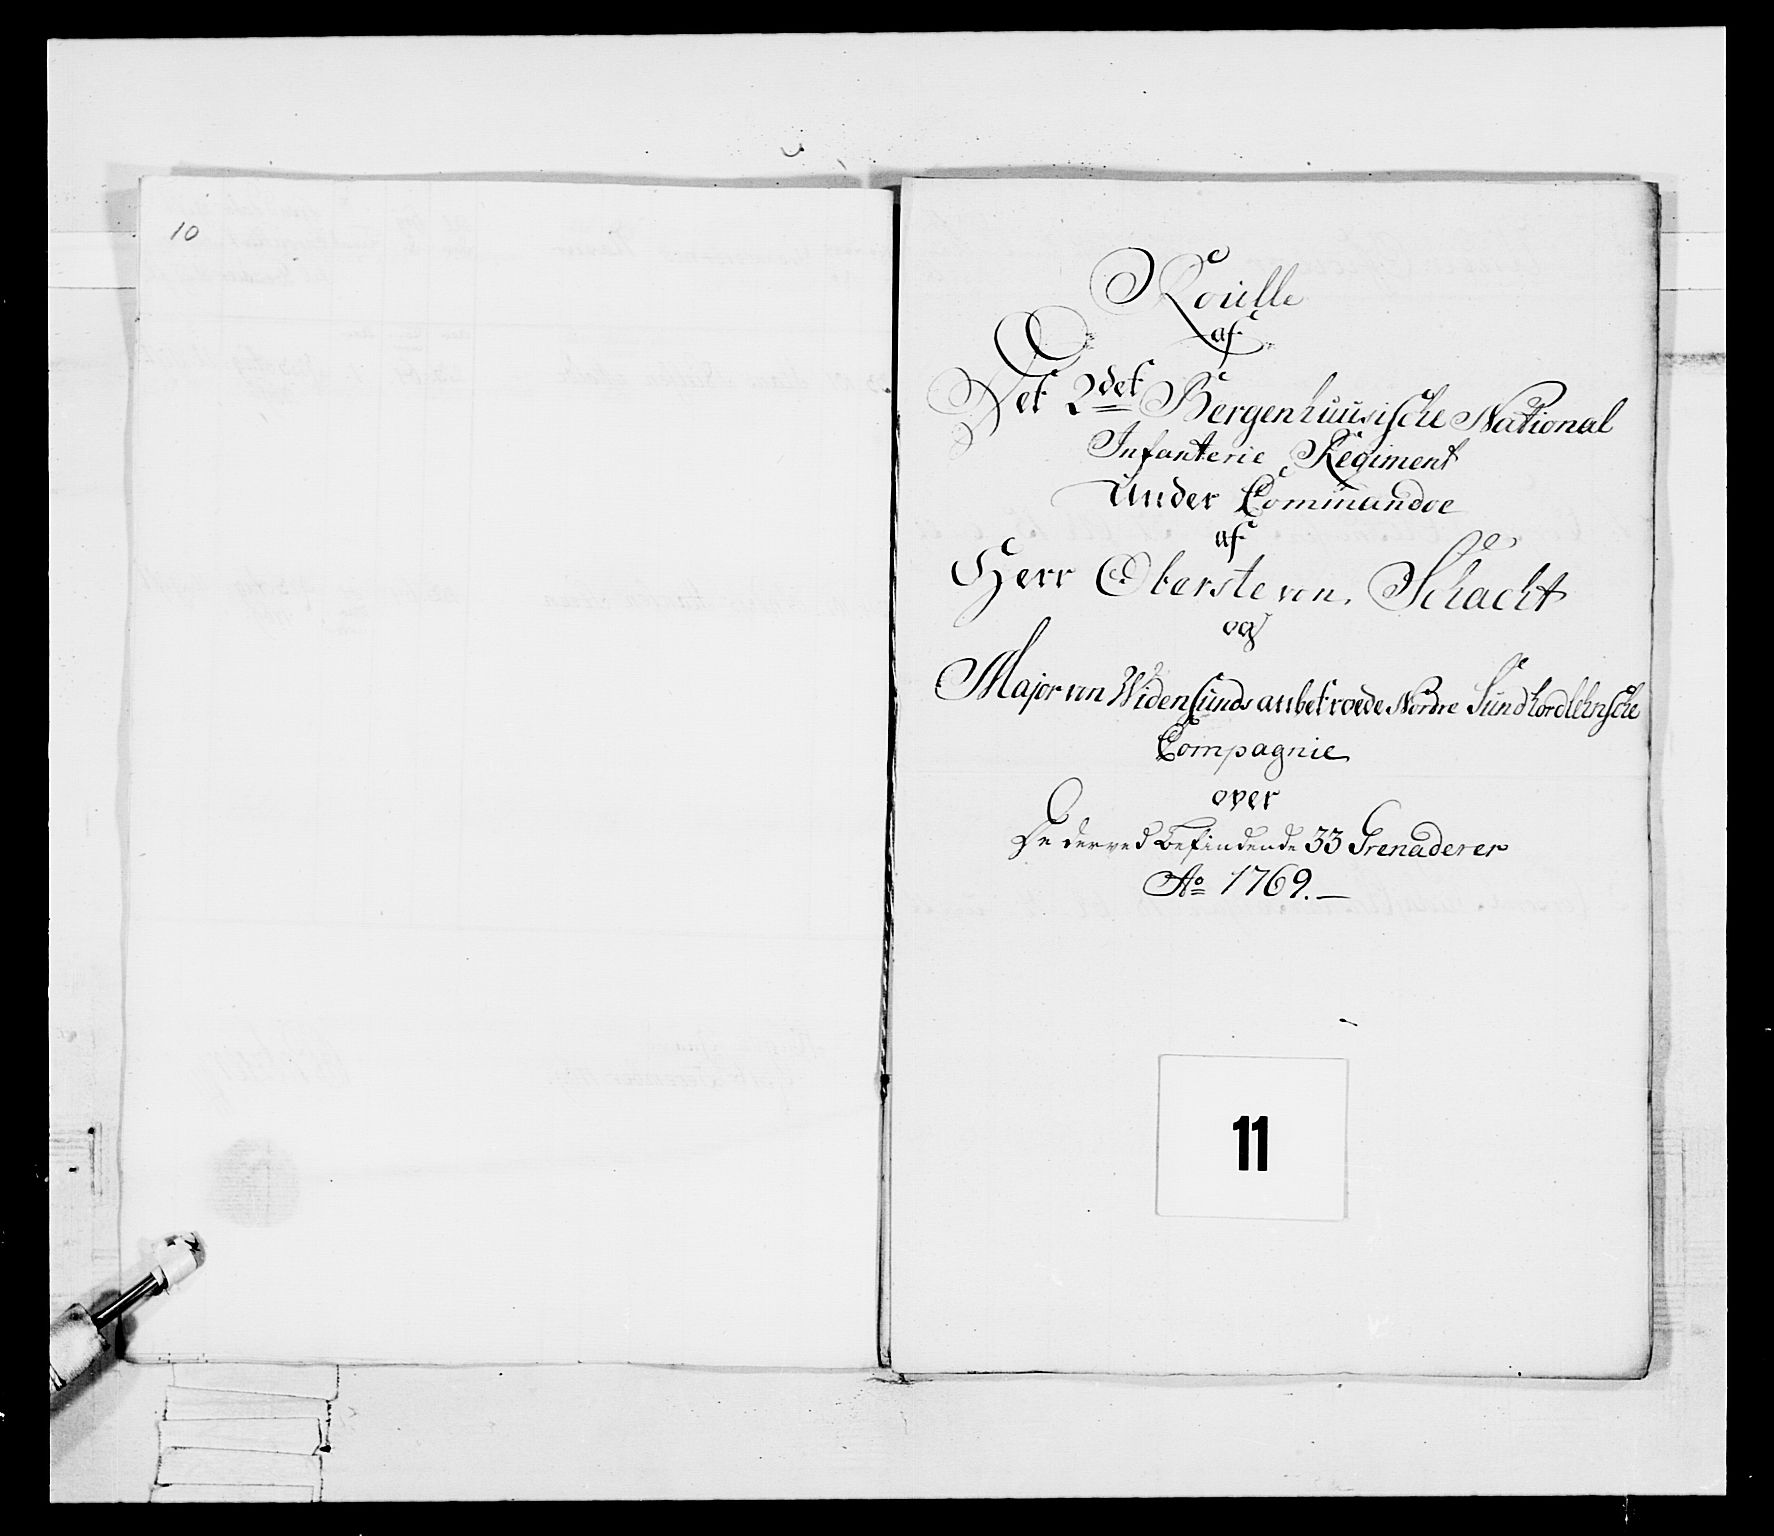 10
Roulle
af
Det 2det Bergenhuusische National
Infanterie Regiment
Under Commandoe
af
Herr Oberste von Schacht
og
Major von Widensunds anbetroede Nordre Sundhordlehnsche
Compagnie
over
De derved befindende 33 Grenaderer
Ao 1769.
11